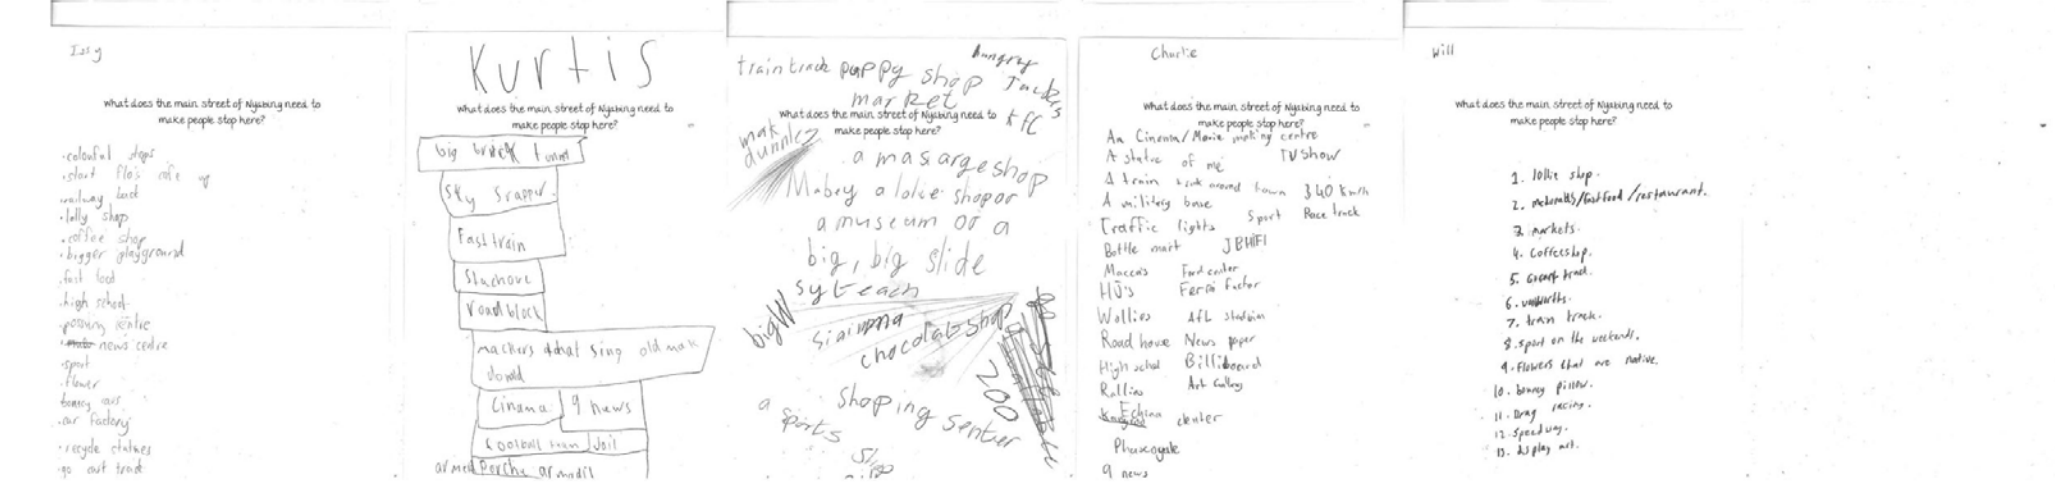 Issy
what does the main street of Nyabing need to
make people stop here?
colourful shops
start flo's cafe up
railway back
lolly shop
coffee shop
bigger playground
fast food
high school
news centre
sport
flower
car factory
recycle clothes
go cart track
Kurtis
what does the main street of Nyabing need to
make people stop here?
big brick tunnl
Sky Srapper
Fast train
road block
mackers that sing old mak
donald
Cinama
9 news
football team
Jail
train track puppy shop
Hungry
Jacks
market
what does the main street of Nyabing need to
KFC
make people stop here?
mak
a masarge shop
Mabey a lolie shop or
a museum or a
big, big slide
big W
chocolat shop
200
shoping sentier
a
sports
Charlie
what does the main street of Nyabing need to
make people stop here?
An Cinema/Movie making centre
A statue of me
TV Show
A train track around town 340 km/h
A military base
Sport Race track
Traffic lights
Bottle mart
JBHIFI
Macca's
HJ's
Wollies
AFL stadium
Road house
News paper
High school
Billiboard
Art Gallery
9 news
Will
what does the main street of Nyabing need to
make people stop here?
1. lollie shop.
2. mcdonalds/fastfood/restaurant.
3. markets.
4. coffeeshop.
7. train track.
8. sport on the weekends.
9. flowers that are native.
10. bouncy pillow.
11. Drag racing.
12. speedway.
13. display art.